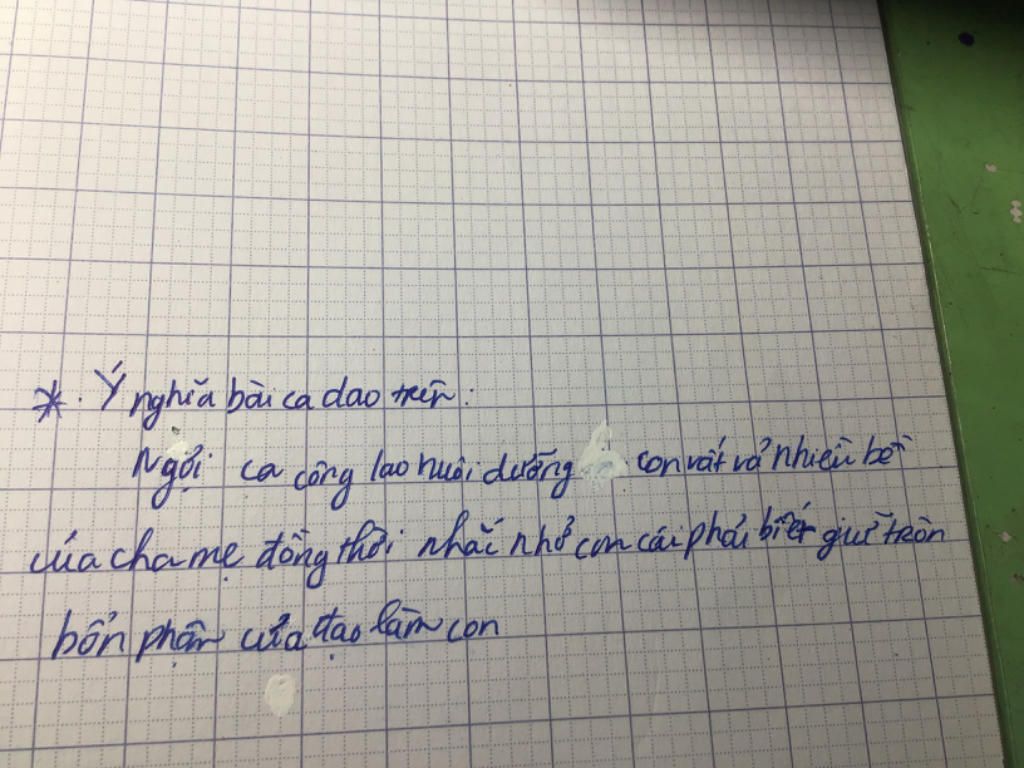 *. Ý nghĩa bài ca dao trên:
Ngợi ca công lao nuôi dưỡng con vất vả nhiều bề
của cha mẹ đồng thời nhắc nhở con cái phải biết giữ tròn
bổn phận của đạo làm con